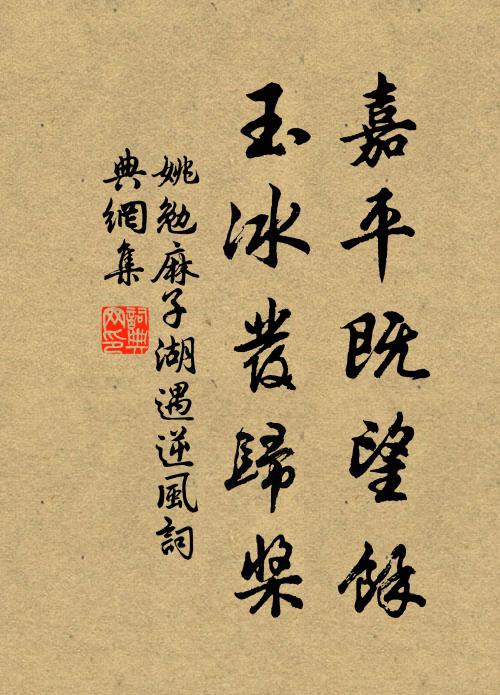 嘉平既望餘
玉冰發歸槳
姚勉麻子湖遇逆風詞
典網集
詞典网印